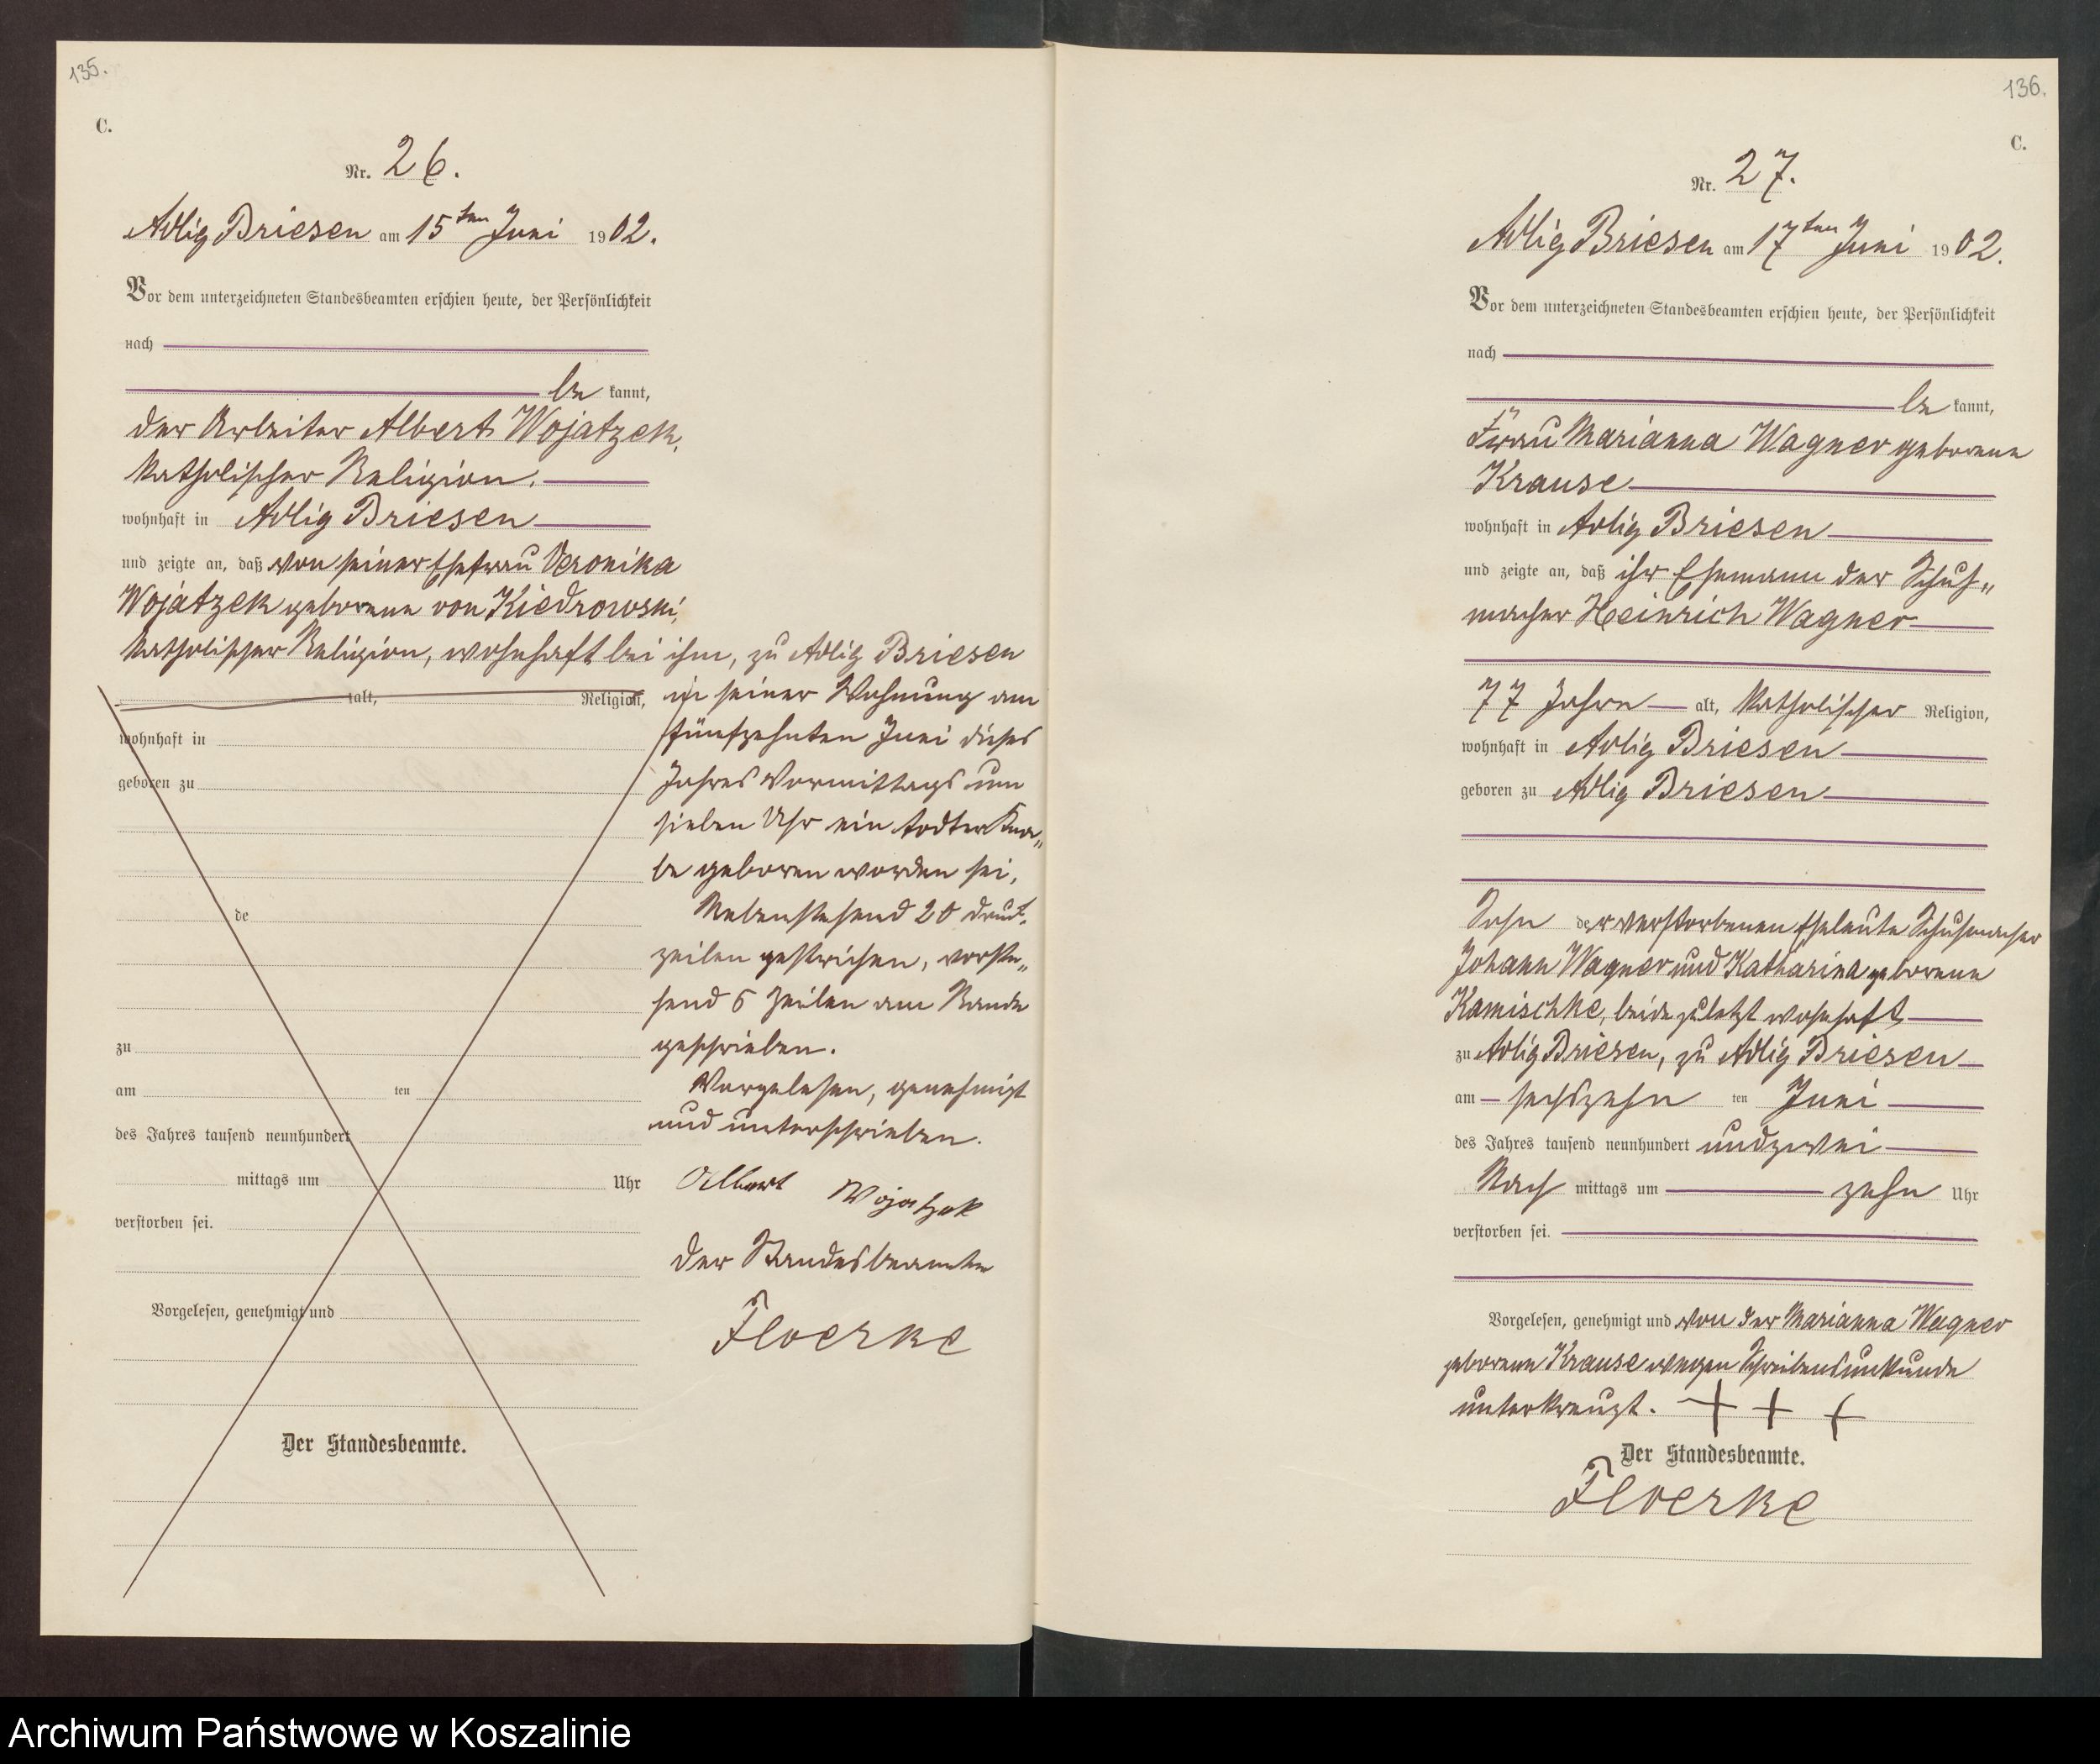 135.
C.
Nr. 26.
Adlig Briesen am 15ten Juni 1902.
Vor dem unterzeichneten Standesbeamten erschien heute, der Persönlichkeit
nach
be kannt,
der Arbeiter Albert Wojatzek,
katholischer Religion,
wohnhaft in Adlig Briesen
und zeigte an, daß von seiner Ehefrau Veronika
Wojatzek geborene von Kiedrowski,
katholischer Religion, wohnhaft bei ihm, zu Adlig Briesen
alt, Religion,
in seiner Wohnung am
wohnhaft in
fünfzehnten Juni dieses
geboren zu
Jahres Vormittags um
sieben Uhr ein todter Kna„
be geboren worden sei.
de
Nebenstehend 20 Druck-
zeilen gestrichen, vorste„
hend 5 Zeilen am Rande
zu
geschrieben.
am ten
Vorgelesen, genehmigt
des Jahres tausend neunhundert
und unterschrieben.
mittags um Uhr
Albert Wojatzek
verstorben sei.
Der Standesbeamte
Vorgelesen, genehmigt und
Floerke
Der Standesbeamte.
136.
C.
Nr. 27.
Adlig Briesen am 17ten Juni 1902.
Vor dem unterzeichneten Standesbeamten erschien heute, der Persönlichkeit
nach
be kannt,
Frau Marianna Wagner geborene
Krause
wohnhaft in Adlig Briesen
und zeigte an, daß ihr Ehemann der Schuh„
macher Heinrich Wagner
77 Jahre alt, katholischer Religion,
wohnhaft in Adlig Briesen
geboren zu Adlig Briesen
Sohn der verstorbenen Eheleute Schuhmacher
Johann Wagner und Katharina geborene
Kamischke, beide zuletzt wohnhaft
zu Adlig Briesen, zu Adlig Briesen
am sechszehn ten Juni
des Jahres tausend neunhundert und zwei
Nach mittags um zehn Uhr
verstorben sei.
Vorgelesen, genehmigt und von der Marianna Wagner
geborene Krause wegen Schreibensunkunde
unterkreuzt. + + +
Der Standesbeamte.
Floerke
Archiwum Państwowe w Koszalinie